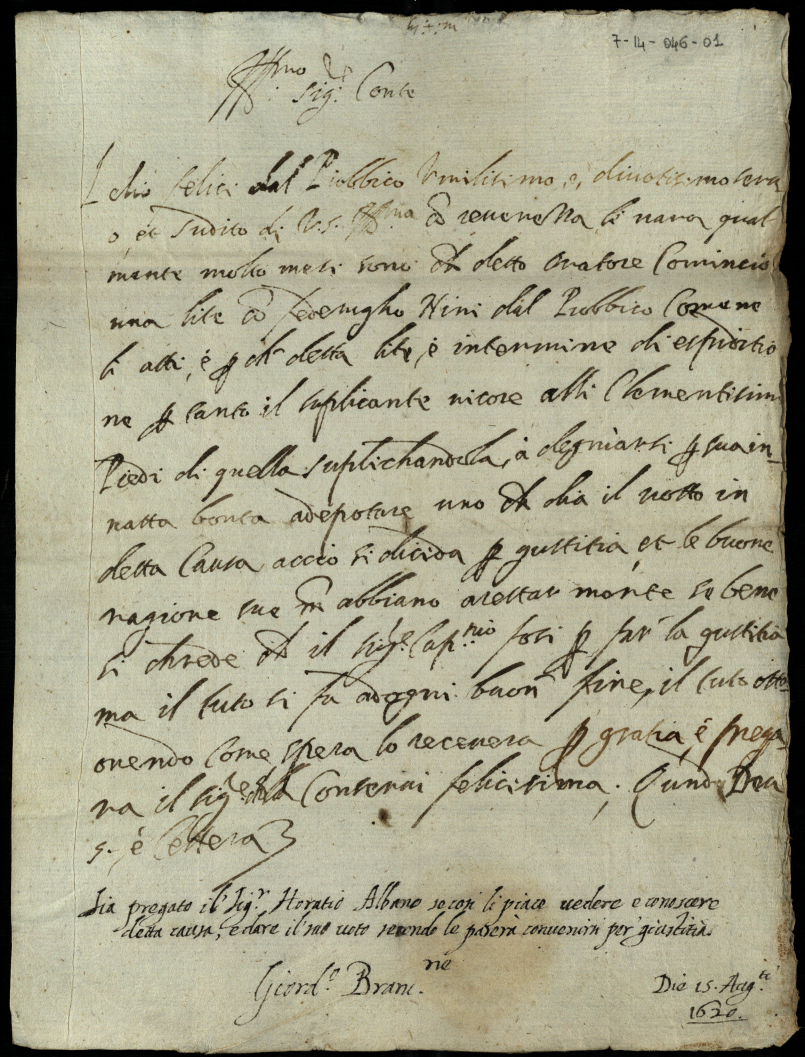 7-14-046-01
Ill.mo
Sig.r Conte
felici dal Piobbico Umilisimo, e, divotisimo serv
o, et sudito di V.S. Ill.ma cō reverenza li nara qual
mente molto mesi sono ch detto oratore Comincio
una lite cō federigho Nini dal Piobbico Comene
li atti, e p detta lite, e intermine di espeditio
ne p tanto il suplicante ricore alli Clementisimi
Piedi di quella suplichandola, a degniarsi p sua in-
natta bonta adepotare uno ch dia il votto in
detta Causa accio si dicida p giustitia, et le buone
ragione sue abbiano arestar monte se bene
si chrede ch il sig.r Cap.nio fosi p far la giustitia
ma il tuto si fa adogni buon fine, il tuto otto
nendo come spera lo recevera p gratia, e prega
ra il sig.r Conservi felicisima. Quam Deus
Sia pregato il Sig.r Horatio Albano se così li piace vedere e conoscere
detta causa, e dare il suo voto secondo le parerà convenirsi per giustitia.
Giord.o Branc.ne
Die 15. Aug.ti
1620.